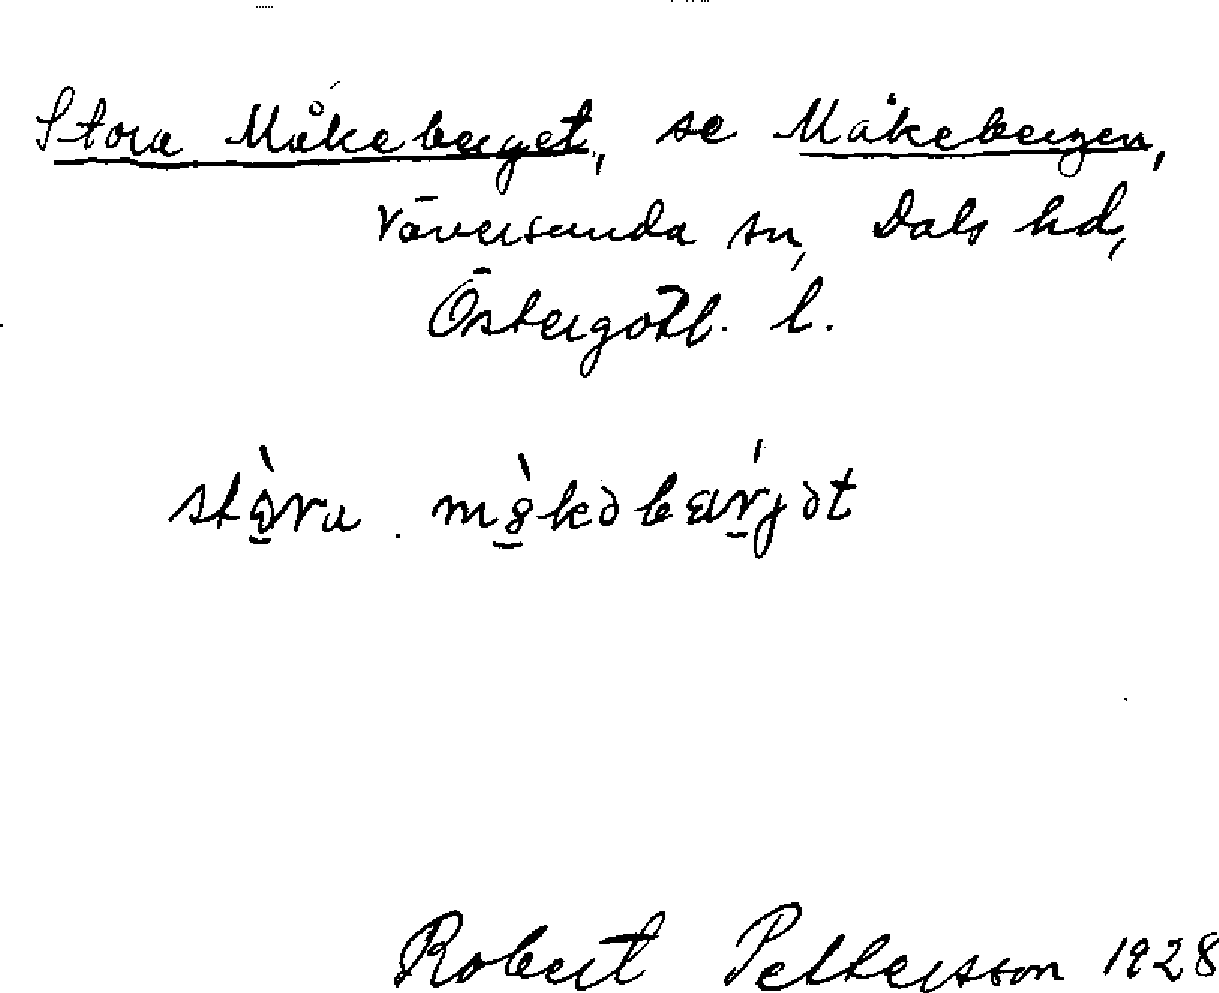 Stora Måkeberget, se Måkebergen,
Väversunda sn, Dals hd,
Östergötl. l.
Robert Pettersson 1928